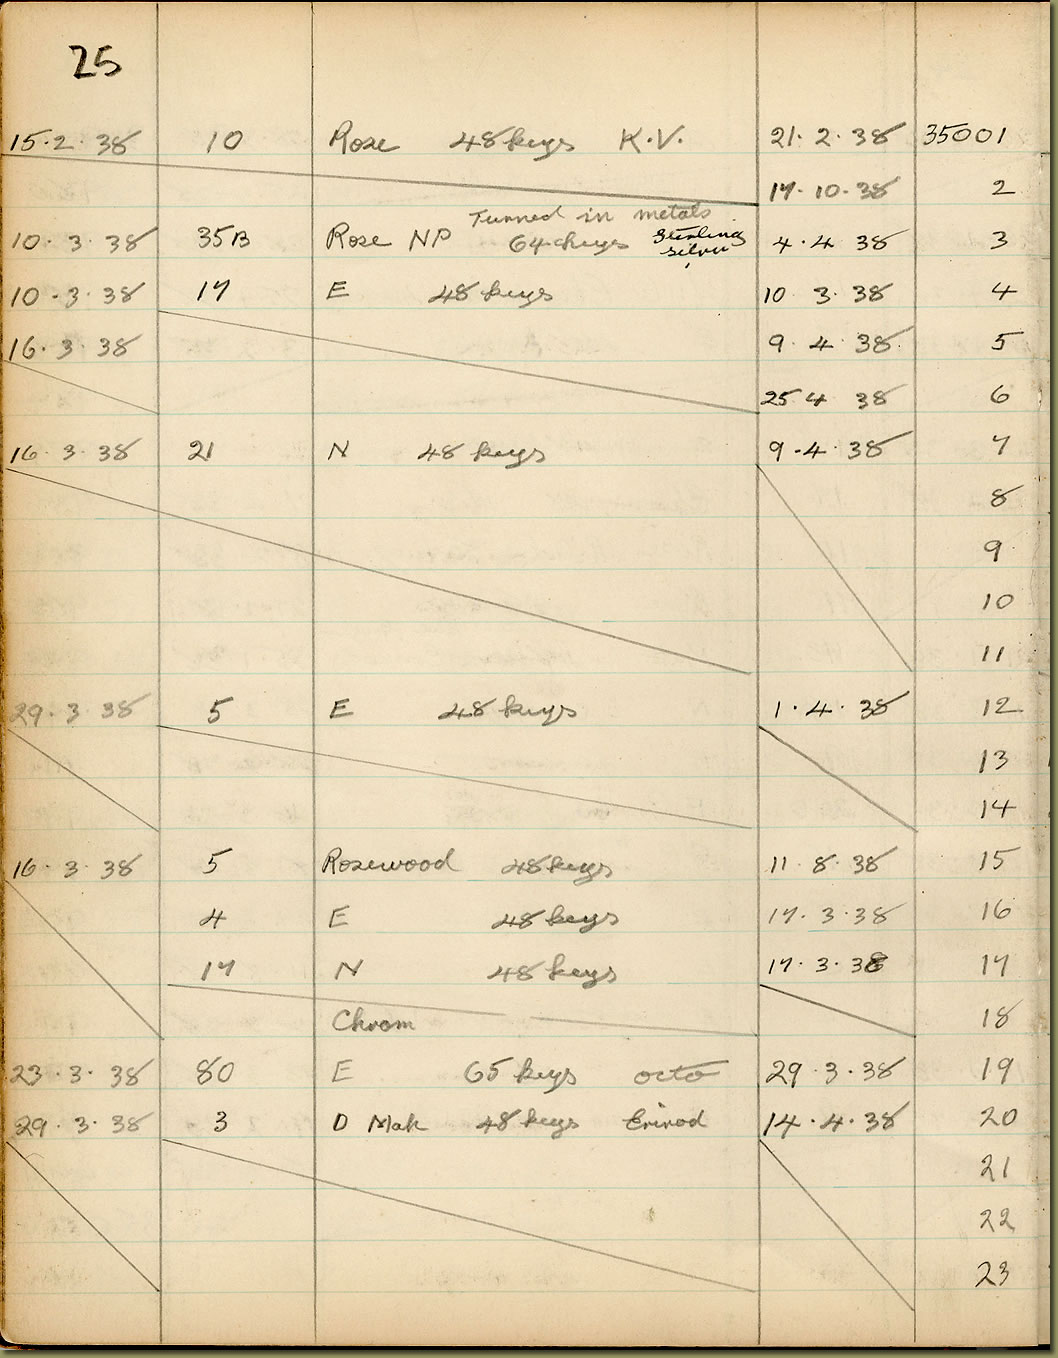 25
15·2·38 10 Rose 48 keys K.V. 21·2·38 35001
17·10·38 2
Tunned in metals
10·3·38 35B Rose NP 64 keys Sterling silver 4·4·38 3
10·3·38 17 E 48 keys 10 3·38 4
16·3·38 9·4·38· 5
25 4 38 6
16·3·38 21 N 48 keys 9·4·38 7
8
9
10
11
29·3·38 5 E 48 keys 1·4·38 12
13
14
16·3·38 5 Rosewood 48 keys 11·8·38 15
4 E 48 keys 17·3·38 16
17 N 48 keys 17·3·38 17
Chrom 18
23·3·38 80 E 65 keys octo 29·3·38 19
29·3·38 3 D Mah 48 keys 14·4·38 20
21
22
23